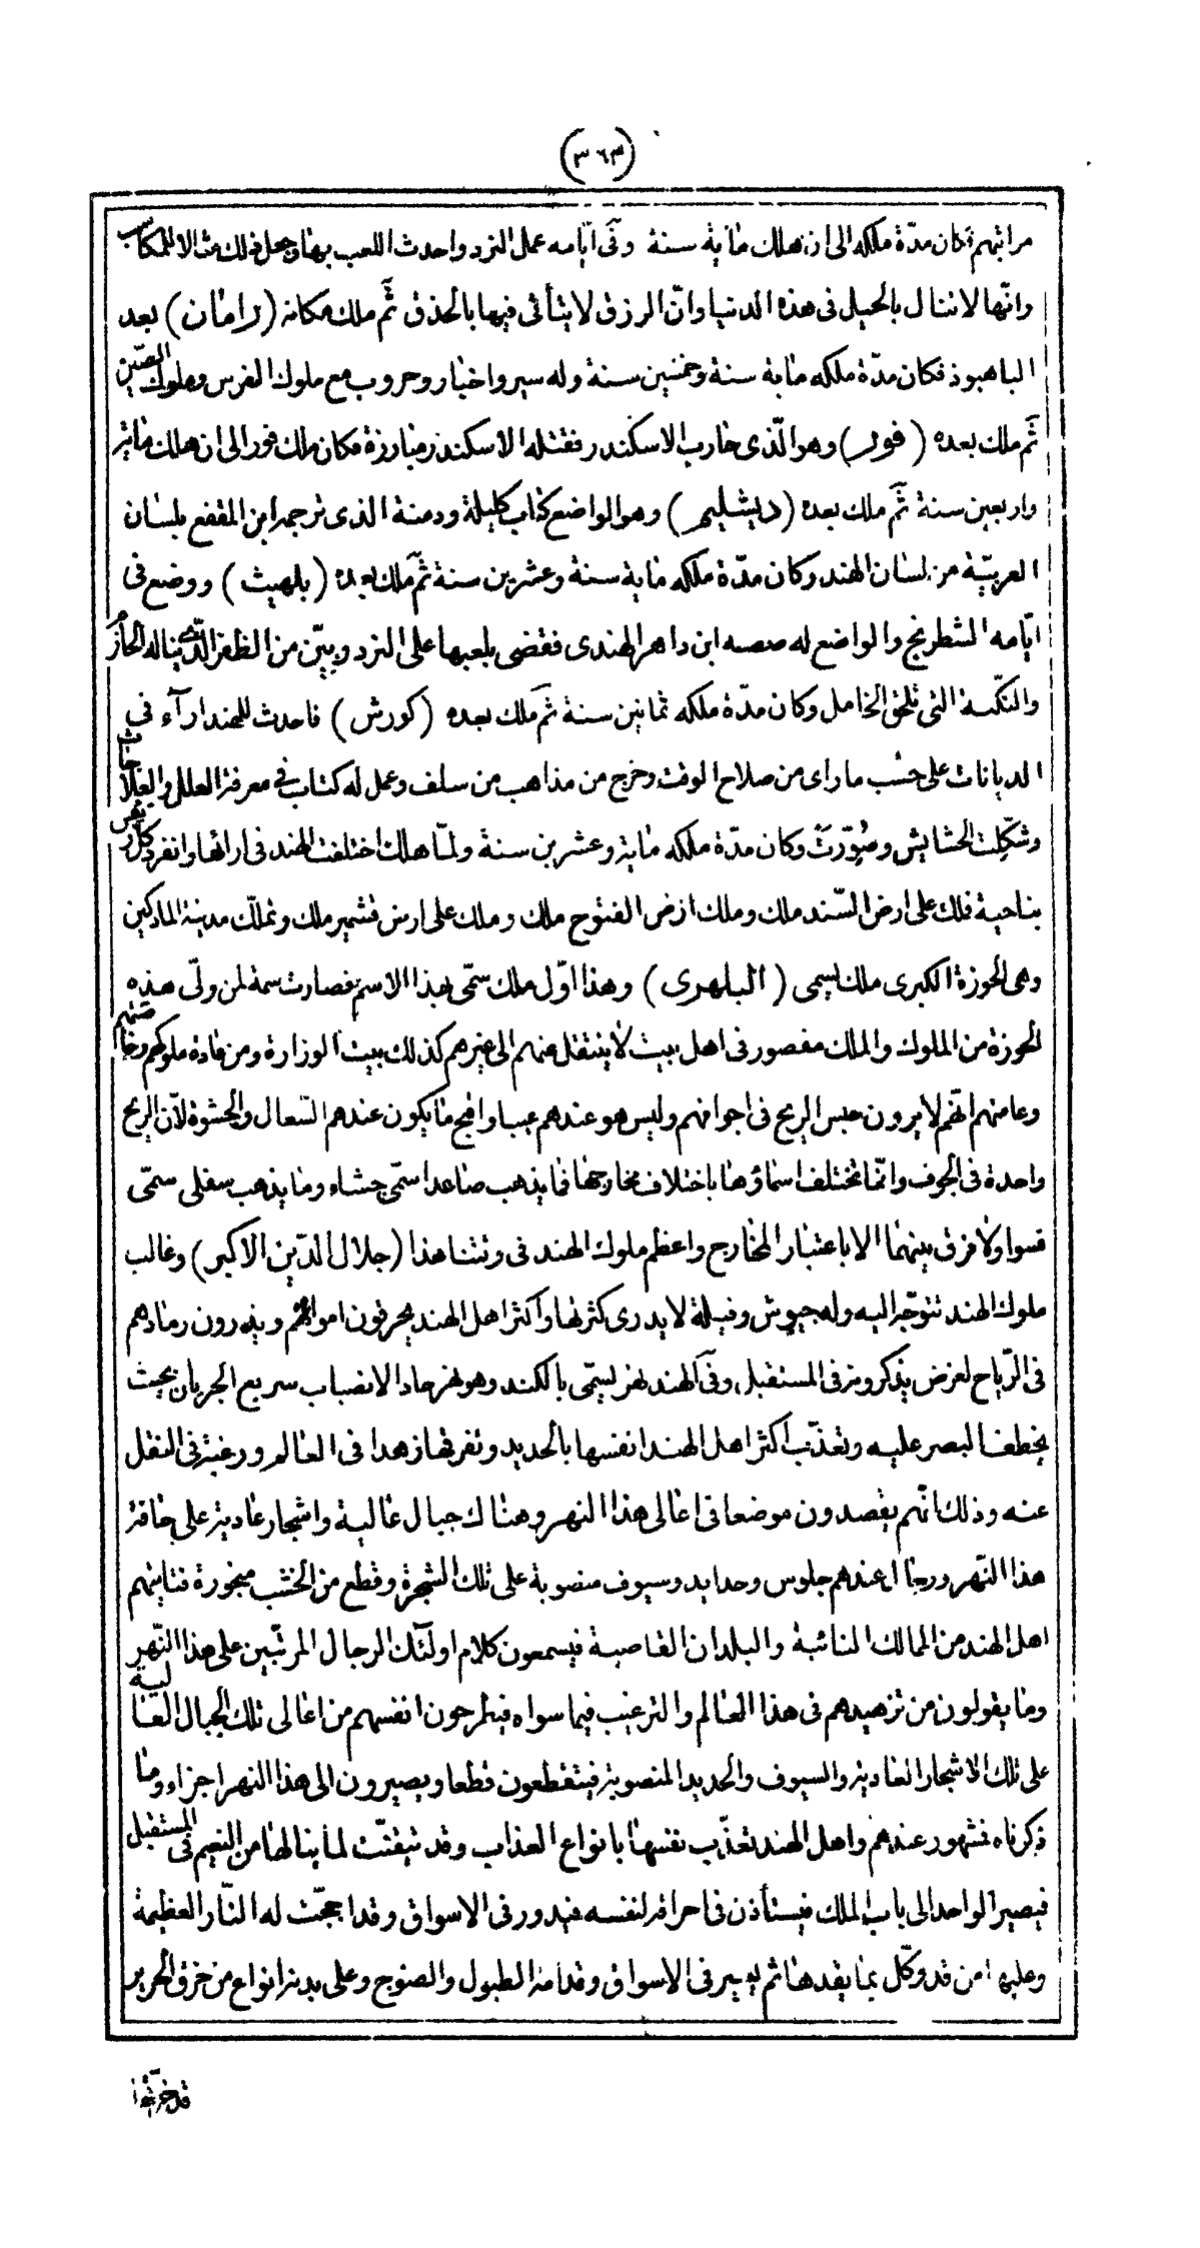 (٣٦٣)
مراتبهم فكان مدّة ملكه الى ان هلك مٰاية سنة وفى ايّامه عمل النرد واحدث اللعب بها وجعل ذلك مثالا للمكاسب
وانّها لا تنال بالحيل فى هذه الدنيا وانّ الرزق لا يتأتى فيها بالحذق ثمّ ملك مكانه (رامان) بعد
الباهبوذ فكان مدّة ملكه مٰاية سنة وخمسين سنة وله سير واخبار وحروب مع ملوك الفرس وملوك الصّين
ثمّ ملك بعده (فور) وهو الّذى حارب الاسكندر فقتله الاسكندر مبارزة فكان ملك فور الى ان هلك مٰاية
واربعين سنة ثمّ ملك بعده (ديشليم) وهو الواضع كتاب كليلة ودمنة الذى ترجمه ابن المقفع بلسان
العربيّة من لسان الهند وكان مدّة ملكه مٰاية سنة وعشرين سنة ثمّ ملك بعده (بلهيث) ووضع فى
ايّامه الشطرنج والواضع له صصه ابن داهر الهندى فقضى بلعبها على النرد وبيّن من الظفر الّذى يناله الحازم
والنكبة التى تلحق الخامل وكان مدّة ملكه ثمانين سنة ثمّ ملك بعده (كورش) فاحدث للهند ارآء فى
الديانات على حسب ما راى من صلاح الوقت وخرج من مذاهب من سلف وعمل له كتاب فى معرفة العلل والعلاجات
وشكّلت الحشايش وصُوّرتْ وكان مدّة ملكه مٰاية وعشرين سنة ولمّا هلك اختلفت الهند فى ارائها وانفرد كلّ رئيس
بناحية فملك على ارض السّند ملك وملك ارض القنوج ملك وملك على ارض قشمير ملك وتملّك مدينة المادكين
وهى الحوزة الكبرى ملك يسمى (البلهرى) وهذا اوّل ملك سمّى بهذا الاسم فصارت سمة لمن ولّى هذه
الحوزة من الملوك والملك مقصور فى اهل بيت لا ينتقل عنهم الى غيرهم كذلك بيت الوزارة ومن عادة ملوكهم وخاصّتهم
وعامتهم انّهم لا يرون حبس الريح فى اجوافهم وليس هو عندهم عيبا واقبح مٰا يكون عندهم السّعال والجشوة لأن الريح
واحدة فى الجوف وانّما تختلف اسمٰاؤهٰا باختلاف مخارجهٰا فمٰا يذهب صاعدا سمّى جشاء ومٰا يذهب سفلى سمّى
فسوا ولا فرق بينهمٰا الا باعتبار المخارج واعظم ملوك الهند فى وقتنا هذا (جلال الدّين الاكبر) وغالب
ملوك الهند تتوجّه اليه وله جيوش وفيلة لا يدرى كثرتها واكثر اهل الهند يحرقون امواتهم ويذرون رمادهم
فى الرّياح لغرض يذكرونه فى المستقبل وفى الهند نهر يسمّى بالكند وهو نهر حاد الانصباب سريع الجريان بحيث
يخطف البصر عليه وتعذّب اكثر اهل الهند انفسها بالحديد وتغرقها زهدا فى العالم ورغبة فى النقل
عنه وذلك انّهم يقصدون موضعا فى اعٰالى هذا النهر وهنٰاك جبال عٰالية واشجار عٰادية على حافة
هذا النّهر ورجٰال عندهم جلوس وحدايد وسيوف منصوبة على تلك الشجرة وقطع من الخشب منجورة فتاتيهم
اهل الهند من الممالك النائية والبلدان القاصية فيسمعون كلام اولئك الرجال المرتّبين على هذا النّهر
ومٰا يقولون من تزهيدهم فى هذا العالم والترغيب فيما سواه فيطرحون انفسهم من اعالى تلك الجبال العالية
على تلك الاشجار العٰادية والسيوف والحديد المنصوبة فيتقطعون قطعا ويصيرون الى هذا النهر اجزاء ومٰا
ذكرناه مشهور عندهم واهل الهند تعذّب نفسهٰا بانواع العذاب وقد تيقنّت لما ينالهٰا من النعيم فى المستقبل
فيصير الواحد الى باب الملك فيستأذن فى احراقه لنفسه فيدور فى الاسواق وقد اججّت له النّار العظيمة
وعليها من قد وكّل بمٰا يقدهٰا ثم يسير فى الاسواق وقدامه الطبول والصنوج وعلى بدنه انواع من خرق الحرير